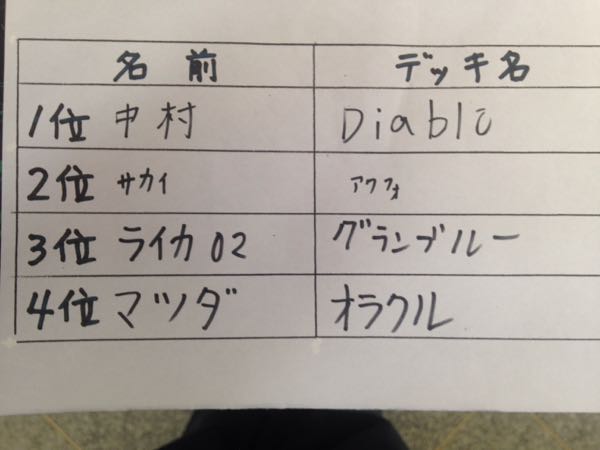 名前 デッキ名
1位 中村 Diablo
2位 サカイ アクフォ
3位 ライカ02 グランブルー
4位 マツダ オラクル